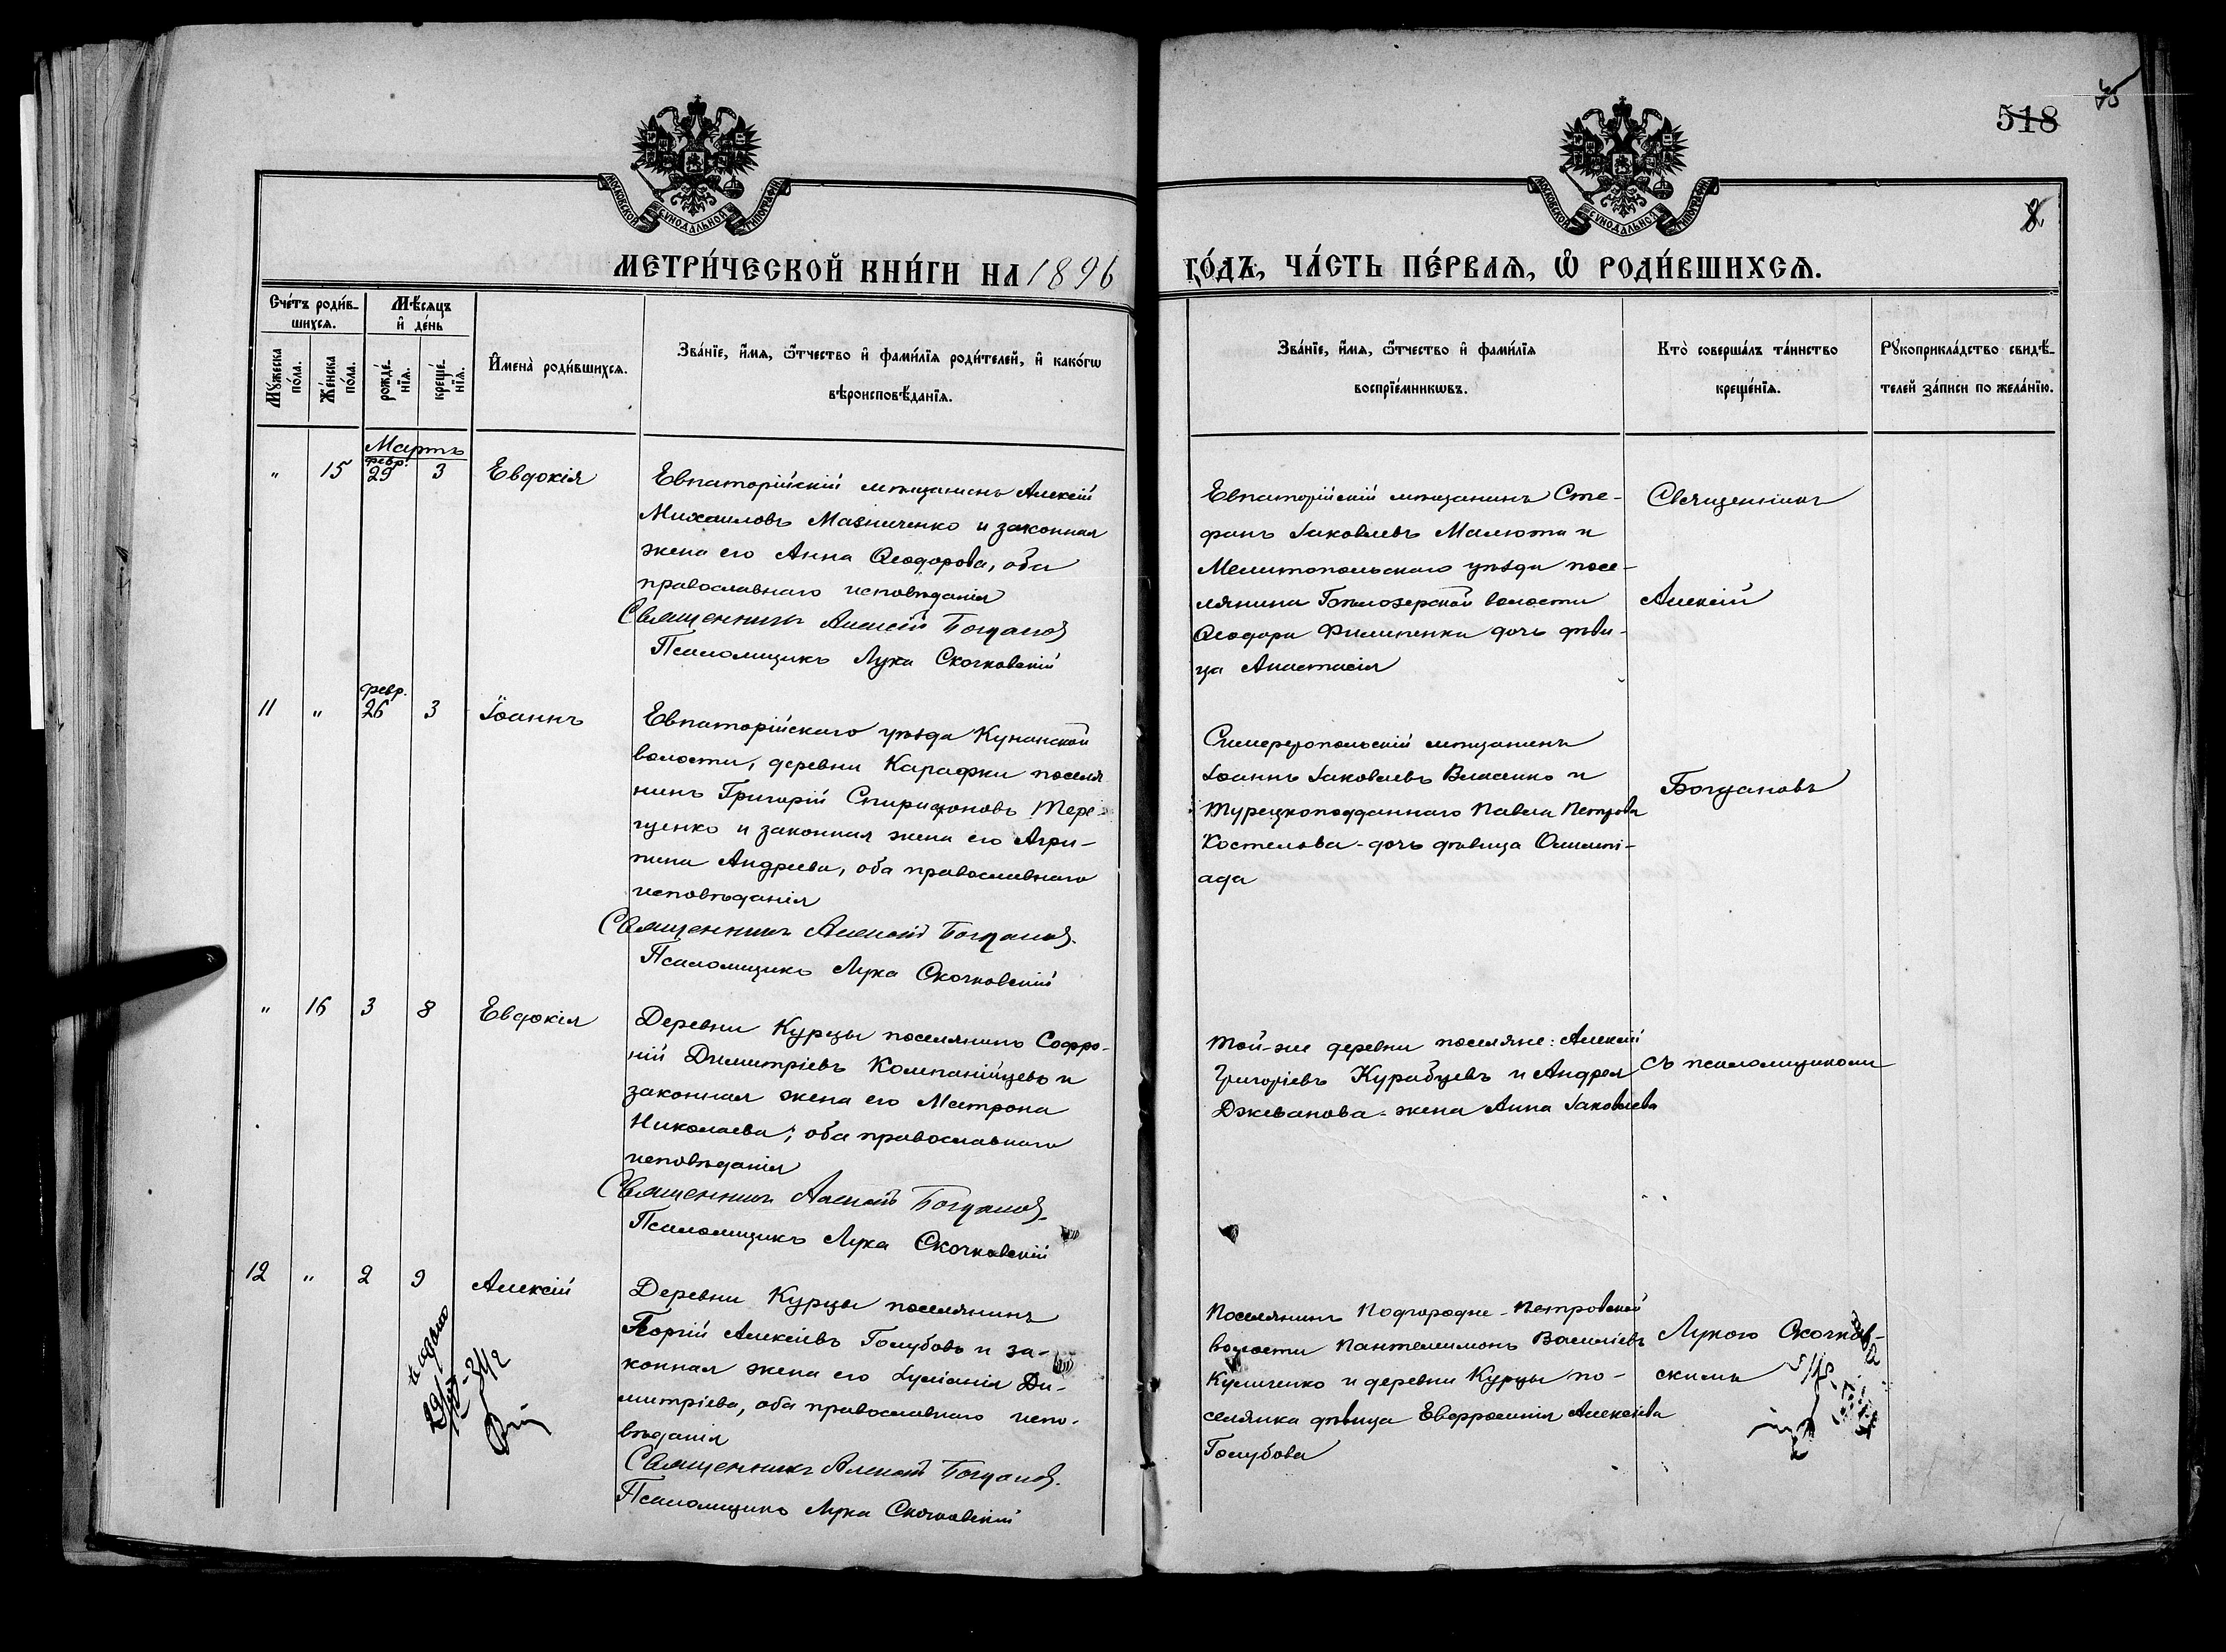 518
МОСКОВСКОЙ СѴНОДАЛЬНОЙ ТИПОГРАФІИ
МОСКОВСКОЙ СѴНОДАЛЬНОЙ ТИПОГРАФІИ
8
МЕТРИ́ЧЕСКОЙ КНИ́ГИ НА 1896
ГО́ДЪ, ЧА́СТЬ ПЕ́РВАѦ, Ѡ҆ РОДИ́ВШИХСѦ.
Сче́тъ роди́в-
шихсѧ.
Мѣ́сѧцъ
и҆ де́нь
Мꙋ́жеска по́ла.
Же́нска по́ла.
рожде́-
нїѧ.
креще́-
нїѧ.
И҆мена̀ роди́вшихсѧ.
Зва́нїе, и҆́мѧ, ѻ҆́тчество и҆ фами́лїѧ роди́телей, и҆ како́гѡ
вѣроисповѣ́данїѧ.
Зва́нїе, и҆́мѧ, ѻ҆́тчество и҆ фами́лїѧ
воспрїе́мникѡвъ.
Кто̀ соверша́лъ та́инство
креще́нїѧ.
Рꙋкоприкла́дство свидѣ́-
телей за́писи по жела́нїю.
Мартъ
" 15 февр. 29 3 Евдокія
Евпаторійскій мѣщанинъ Алексій
Михаиловъ Мазниченко и законная
жена его Анна Ѳеодорова, оба
православнаго исповѣданія
Священникъ Алексій Богданов
Псаломщикъ Лука Скочковскій
Евпаторійскій мѣщанинъ Сте-
фанъ Іаковлевъ Малюта и
Мелитопольскаго уѣзда посе-
лянина Бѣлозерской волости
Ѳеодора Филипенки дочь дѣви-
ца Анастасія
Священникъ
Алексій
Богдановъ
11 " февр. 26 3 Іоаннъ
Евпаторійскаго уѣзда Кунанской
волости, деревни Карафки поселя
нинъ Григорій Спиридоновъ Тере-
щенко и законная жена его Агри-
пина Андреева, оба православнаго
исповѣданія
Священникъ Алексій Богданов.
Псаломщикъ Лука Скочковскій
Симферопольскій мѣщанинъ
Іоаннъ Іаковлевъ Власенко и
Турецкоподданнаго Павла Петрова
Костелова - дочь дѣвица Олимпі-
ада
" 16 3 8 Евдокія
Деревни Курцы поселянинъ Софро-
ній Димитріевъ Компанійцевъ и
законная жена его Матрона
Николаева; оба православнаго
исповѣданія
Священникъ Алексій Богданов.
Псаломщикъ Лука Скочковскій
Той-же деревни поселяне: Алексій
Григоріевъ Курабцевъ и Андрея
Джеванова - жена Анна Іаковлева
съ псаломщикомъ
12 " 2 9 Алексій
Деревни Курцы поселянинъ
Георгій Алексіевъ Голубовъ и за-
конная жена его Іуліанія Ди-
митріева, оба православнаго испо-
вѣданія
Священникъ Алексій Богданов.
Псаломщикъ Лука Скочковскій
Поселянинъ Подгородне-Петровской
волости Пантелеимонъ Василіевъ
Куличенко и деревни Курцы по-
селянка дѣвица Евфросинія Алексіева
Голубова
Лукою Скочков-
скимъ